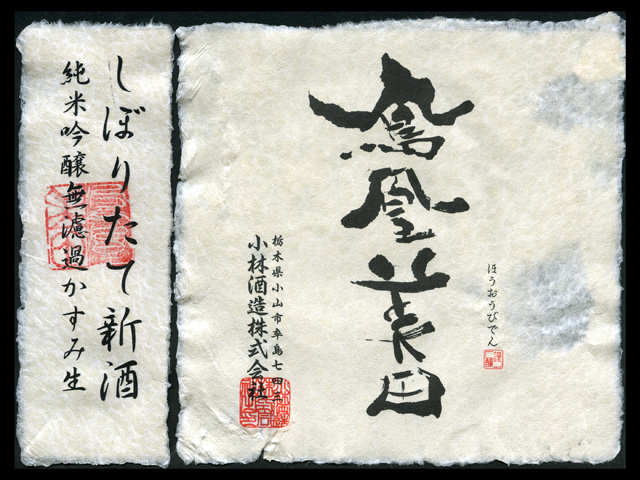 ほうおうびでん
鳳凰美田
栃木県小山市卒島七四三
小林酒造株式会社
しぼりたて新酒
純米吟醸無濾過かすみ生